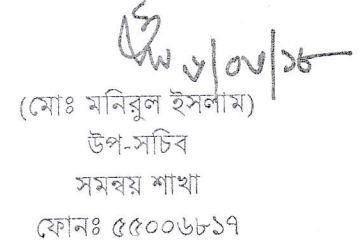 (মোঃ মনিরুল ইসলাম)
উপ-সচিব
সমন্বয় শাখা
ফোনঃ ৫৫০০৬৮১৭